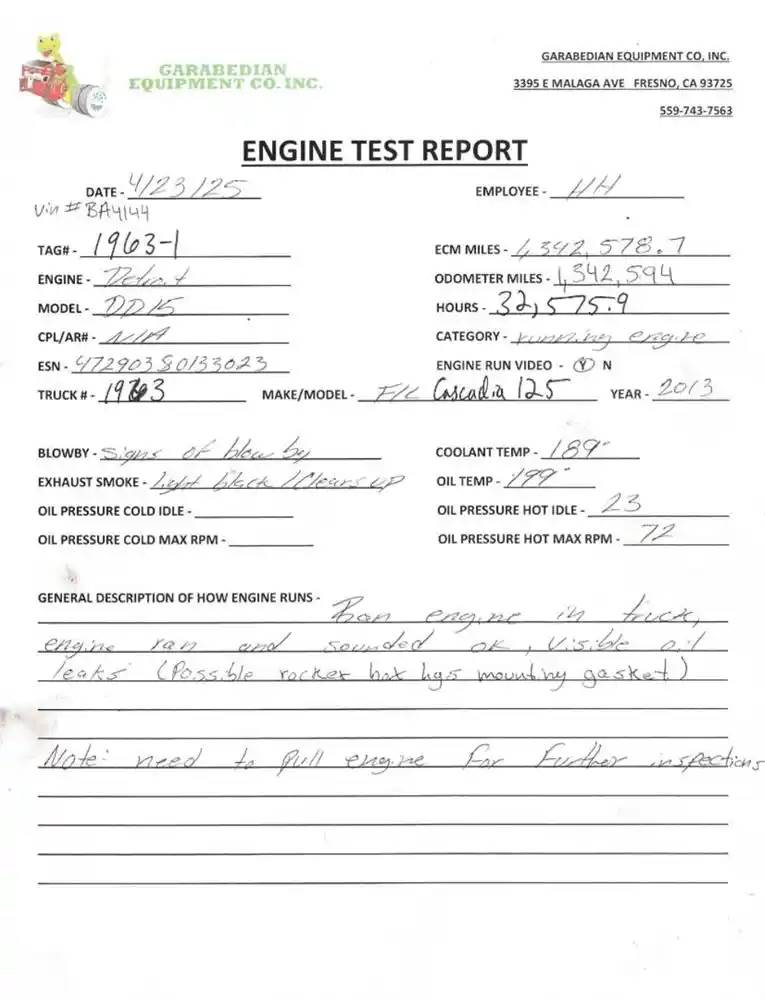 GARABEDIAN
EQUIPMENT CO. INC.
GARABEDIAN EQUIPMENT CO, INC.
3395 E MALAGA AVE FRESNO, CA 93725
559-743-7563
ENGINE TEST REPORT
DATE - 4/23/25 EMPLOYEE - HH
Vin # BA4144
TAG# - 1963-1 ECM MILES - 1,342,578.7
ENGINE - Detroit ODOMETER MILES - 1,342,594
MODEL - DD15 HOURS - 32,575.9
CPL/AR# - N/A CATEGORY - running engine
ESN - 472903S0133023 ENGINE RUN VIDEO - Y N
TRUCK # - 1963 MAKE/MODEL - F/L Cascadia 125 YEAR - 2013
BLOWBY - signs of blow by COOLANT TEMP - 189°
EXHAUST SMOKE - Light black / Clears up OIL TEMP - 199°
OIL PRESSURE COLD IDLE - OIL PRESSURE HOT IDLE - 23
OIL PRESSURE COLD MAX RPM - OIL PRESSURE HOT MAX RPM - 72
GENERAL DESCRIPTION OF HOW ENGINE RUNS - Ran engine in truck,
engine ran and sounded ok, visible oil
leaks (Possible rocker box hgs mounting gasket)
Note: need to pull engine for further inspections